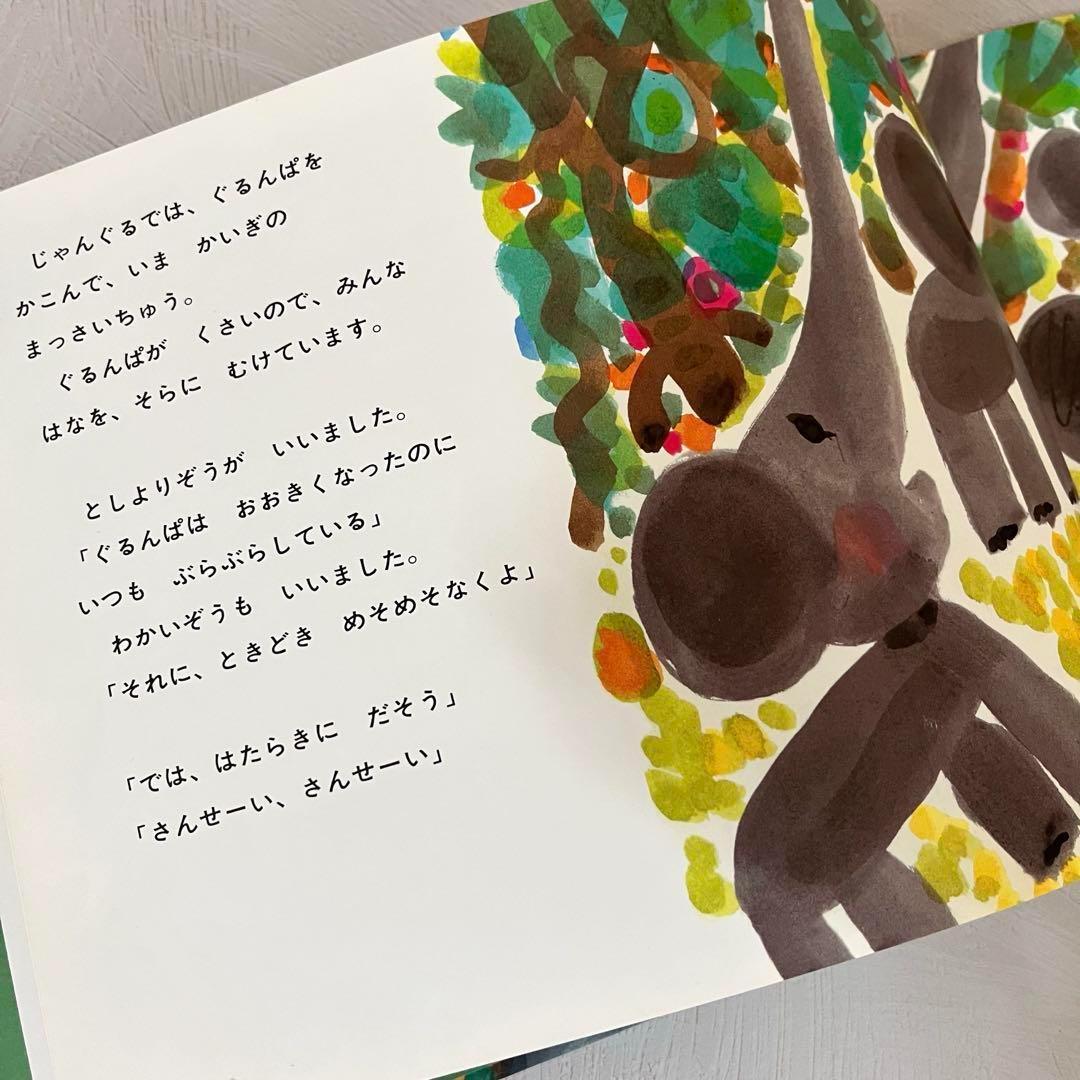 じゃんぐるでは、ぐるんぱを
かこんで、いま　かいぎの
まっさいちゅう。
ぐるんぱが　くさいので、みんな
はなを、そらに　むけています。
としよりぞうが　いいました。
「ぐるんぱは　おおきくなったのに
いつも　ぶらぶらしている」
わかいぞうも　いいました。
「それに、ときどき　めそめそなくよ」
「では、はたらきに　だそう」
「さんせーい、さんせーい」